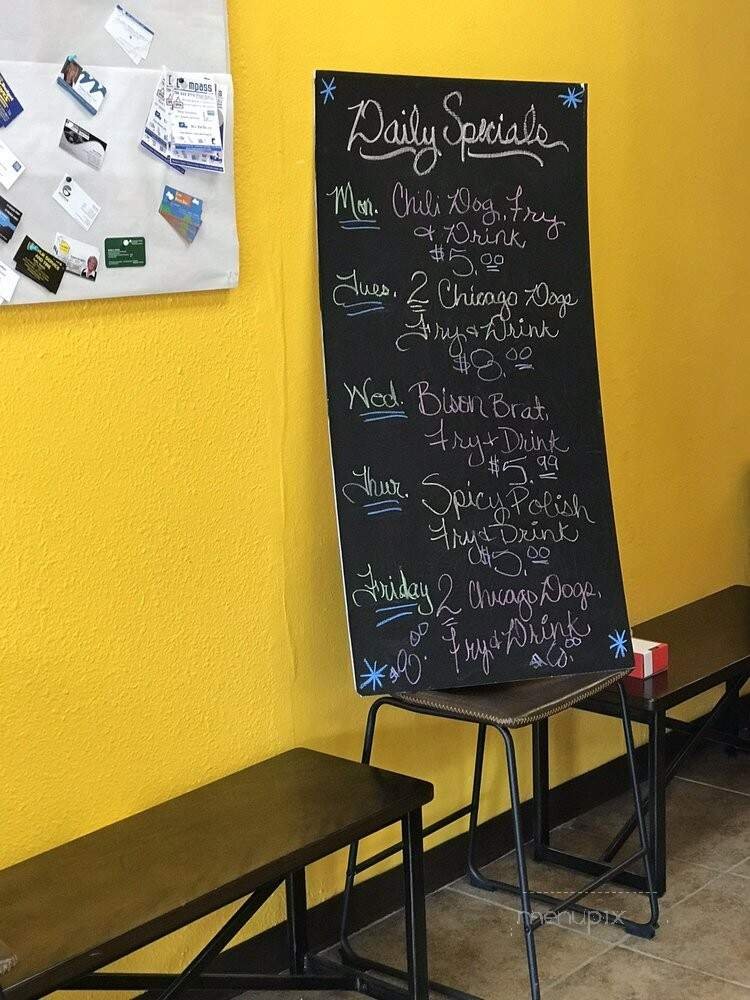 Daily Specials
Mon. Chili Dog, Fry
& Drink
$5.00
Tues. 2 Chicago Dogs
Fry & Drink
$8.00
Wed. Bison Brat,
Fry + Drink
$5.99
Thur. Spicy Polish
Fry & Drink
$5.00
Friday 2 Chicago Dogs,
Fry & Drink
$8.00
mpass
menupix